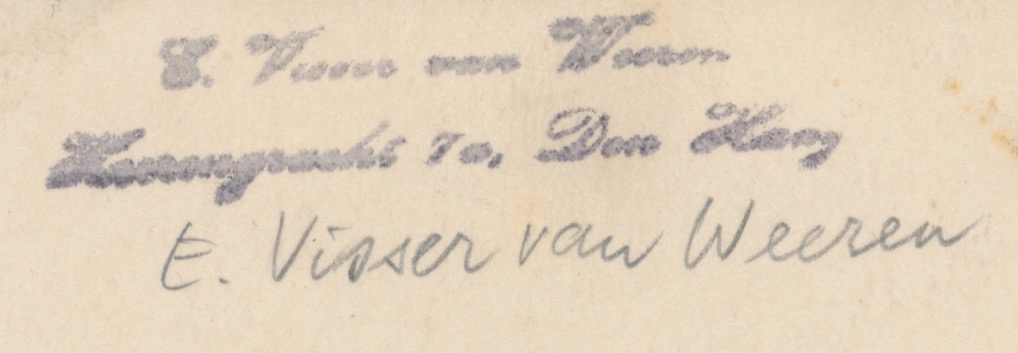 E. Visser van Weeren
Heerengracht 7a, Den Haag
E. Visser van Weeren